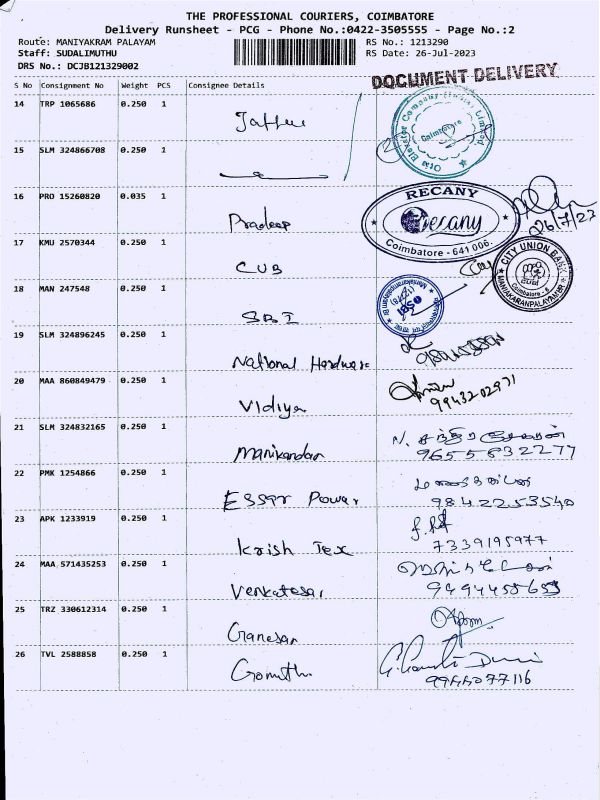 THE PROFESSIONAL COURIERS, COIMBATORE
Delivery Runsheet - PCG - Phone No.:0422-3505555 - Page No.:2
Route: MANIYAKRAM PALAYAM RS No.: 1213290
Staff: SUDALIMUTHU RS Date: 26-Jul-2023
DRS No.: DCJB121329002
DOCUMENT DELIVERY
S No Consignment No Weight PCS Consignee Details
14 TRP 1065686 0.250 1
Otis Elevator Company (India) Limited
Coimbatore
15 SLM 324866708 0.250 1
16 PRO 15260820 0.035 1 Pradeep
RECANY
Recany
Coimbatore - 641 006.
26/7/23
17 KMU 2570344 0.250 1 CUB
CITY UNION BANK
Coimbatore - 6
MANIAKARANPALAYAM
18 MAN 247548 0.250 1 SBI
OSBI
19 SLM 324896245 0.250 1 National Hardware
20 MAA 860849479 0.250 1 Vidiya
9943202971
21 SLM 324832165 0.250 1 Manikandan
9655832277
22 PMK 1254866 0.250 1 Essar Power
9842253540
23 APK 1233919 0.250 1 Krish Tex
7339195977
24 MAA 571435253 0.250 1 Venkatesar
9494455653
25 TRZ 330612314 0.250 1 Ganesan
26 TVL 2588858 0.250 1 Gomathi
9944077116